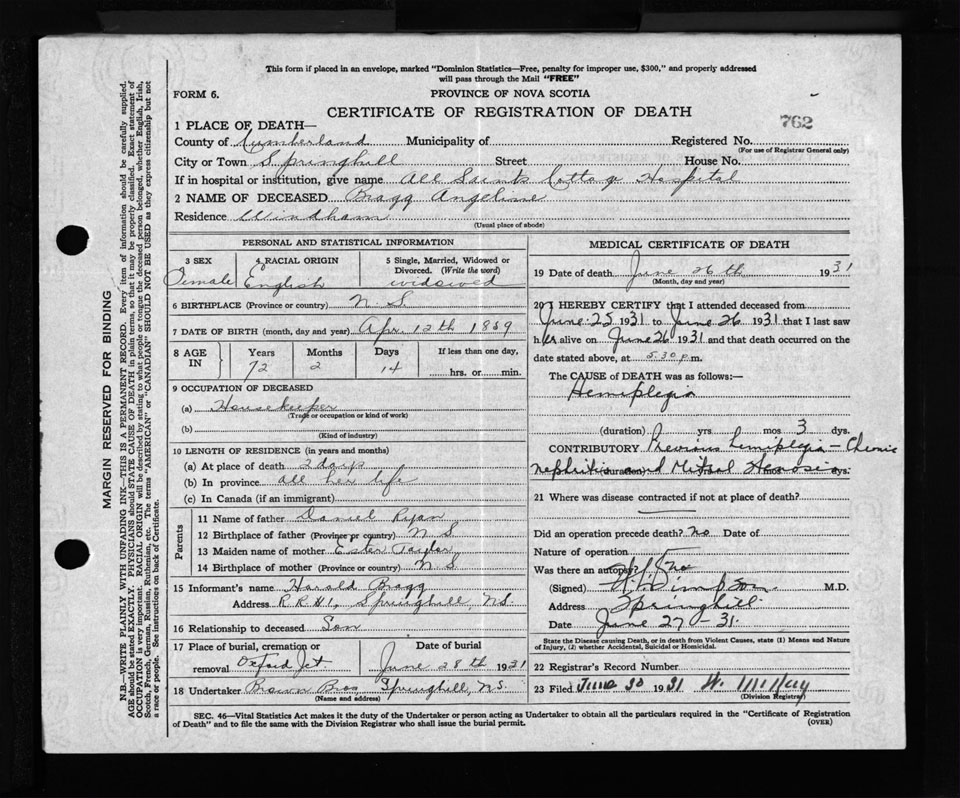 This form if placed in an envelope, marked "Dominion Statistics—Free, penalty for improper use, $300," and properly addressed
will pass through the Mail "FREE"
FORM 6.
PROVINCE OF NOVA SCOTIA
CERTIFICATE OF REGISTRATION OF DEATH
762
1 PLACE OF DEATH—
County of Cumberland Municipality of Registered No.
(For use of Registrar General only)
City or Town Springhill Street House No.
If in hospital or institution, give name All Saints Cottage Hospital
2 NAME OF DECEASED Bragg Angeline
Residence Windham
(Usual place of abode)
MARGIN RESERVED FOR BINDING
N.B.—WRITE PLAINLY WITH UNFADING INK—THIS IS A PERMANENT RECORD. Every item of information should be carefully supplied.
AGE should be stated EXACTLY. PHYSICIANS should STATE CAUSE OF DEATH in plain terms, so that it may be properly classified. Exact statement of
OCCUPATION is very important. RACIAL ORIGIN will be described by stating to what people or tongue the deceased person belonged, whether English, Irish,
Scotch, French, German, Russian, Ruthenian, etc. The terms "AMERICAN" or "CANADIAN" SHOULD NOT BE USED as they express citizenship but not
a race or people. See instructions on back of Certificate.
PERSONAL AND STATISTICAL INFORMATION
3 SEX
Female
4 RACIAL ORIGIN
English
5 Single, Married, Widowed or
Divorced. (Write the word)
widowed
6 BIRTHPLACE (Province or country) N. S.
7 DATE OF BIRTH (month, day and year) Apr. 12th 1859
8 AGE IN
Years Months Days If less than one day,
72 2 14 hrs. or min.
9 OCCUPATION OF DECEASED
(a) Housekeeper
(Trade or occupation or kind of work)
(b)
(Kind of industry)
10 LENGTH OF RESIDENCE (in years and months)
(a) At place of death 2 days
(b) In province all her life
(c) In Canada (if an immigrant)
Parents
11 Name of father Daniel Ryan
12 Birthplace of father (Province or country) N S
13 Maiden name of mother Ester Taylor
14 Birthplace of mother (Province or country) N S
15 Informant's name Harald Bragg
Address R R #1, Springhill, N.S.
16 Relationship to deceased Son
17 Place of burial, cremation or Date of burial
removal Oxford Jct. June 28th 1931
18 Undertaker Brown Bros Springhill, N.S.
(Name and address)
MEDICAL CERTIFICATE OF DEATH
19 Date of death June 26th 1931
(Month, day and year)
20 I HEREBY CERTIFY that I attended deceased from
June 25 1931 to June 26 1931 that I last saw
her alive on June 26 1931 and that death occurred on the
date stated above, at 5.30 p.m.
The CAUSE of DEATH was as follows:—
Hemiplegia
(duration) yrs mos 3 dys.
CONTRIBUTORY Previous hemiplegia – Chronic
nephritis and Mitral Stenosis
(duration) yrs mos dys.
21 Where was disease contracted if not at place of death?
Did an operation precede death? no Date of
Nature of operation
Was there an autopsy? no
(Signed) Simpson M.D.
Address Springhill.
Date June 27–31.
State the Disease causing Death, or in death from Violent Causes, state (1) Means and Nature
of Injury, (2) whether Accidental, Suicidal or Homicidal.
22 Registrar's Record Number
23 Filed June 30 1931
(Division Registrar)
SEC. 46—Vital Statistics Act makes it the duty of the Undertaker or person acting as Undertaker to obtain all the particulars required in the "Certificate of Registration
of Death" and to file the same with the Division Registrar who shall issue the burial permit.
(OVER)